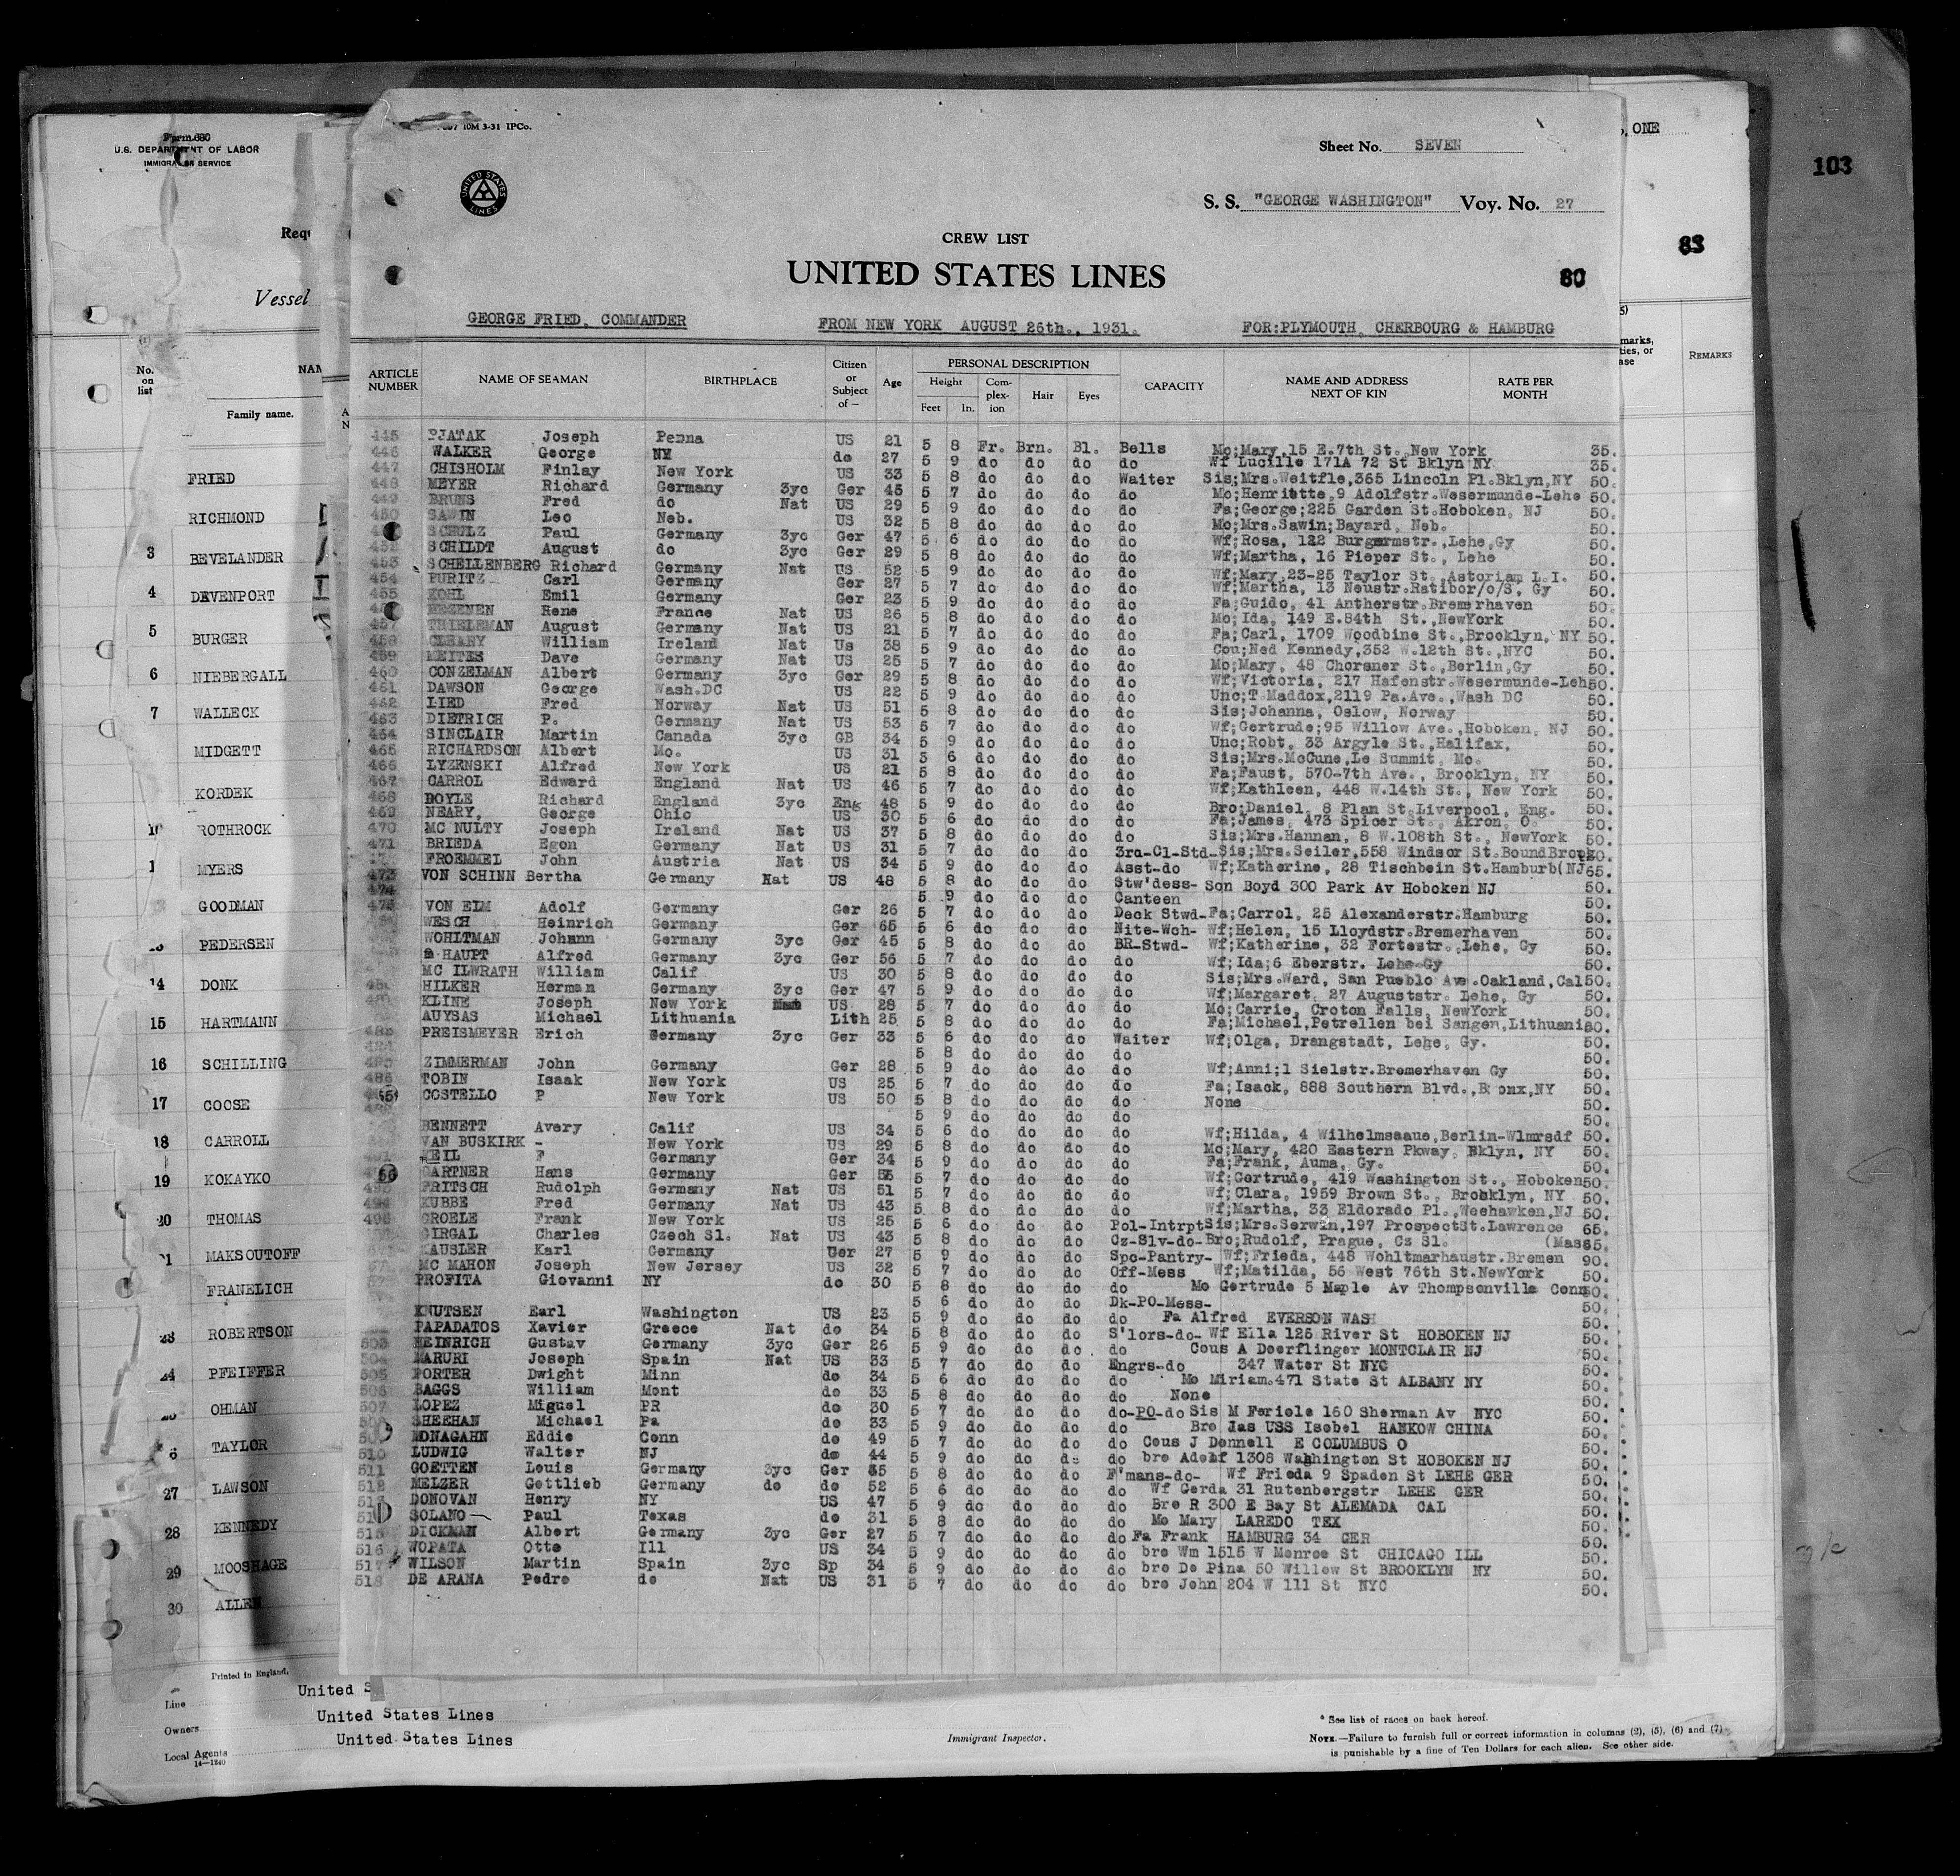 103
, ONE
83
Form 680
U.S. DEPARTMENT OF LABOR
IMMIGRATION SERVICE
Vessel
No. on list
Family name.
FRIED
RICHMOND
3 BEVELANDER
4 DEVENPORT
5 BURGER
6 NIEBERGALL
7 WALLECK
MIDGETT
KORDEK
10 ROTHROCK
1 MYERS
GOODMAN
PEDERSEN
14 DONK
15 HARTMANN
16 SCHILLING
17 COOSE
18 CARROLL
19 KOKAYKO
20 THOMAS
21 MAKSOUTOFF
FRANELICH
23 ROBERTSON
24 PFEIFFER
OHMAN
6 TAYLOR
27 LAWSON
28 KENNEDY
29 MOOSHAGE
30 ALLEN
10M 3-31 IPCo.
UNITED STATES LINES
Sheet No. SEVEN
S. S. "GEORGE WASHINGTON" Voy. No. 27
CREW LIST
UNITED STATES LINES
80
GEORGE FRIED. COMMANDER FROM NEW YORK AUGUST 26th., 1931. FOR:PLYMOUTH, CHERBOURG & HAMBURG
ARTICLE NUMBER NAME OF SEAMAN BIRTHPLACE Citizen or Subject of — Age PERSONAL DESCRIPTION Height Feet In. Complexion Hair Eyes CAPACITY NAME AND ADDRESS NEXT OF KIN RATE PER MONTH
REMARKS
445 PJATAK Joseph Penna US 21 5 8 Fr. Brn. Bl. Bells Mo;Mary,15 E.7th St., New York 35.
446 WALKER George NY do 27 5 9 do do do do Wf Lucille 171A 72 St Bklyn NY 35.
447 CHISHOLM Finlay New York US 33 5 8 do do do Waiter Sis;Mrs.Weitfle,365 Lincoln Pl.Bklyn,NY 50.
448 MEYER Richard Germany 3yc Ger 45 5 7 do do do do Mo;Henriette,9 Adolfstr.Wesermunde-Lehe 50.
449 BRUNS Fred do Nat US 29 5 9 do do do do Fa;George;225 Garden St.Hoboken, NJ 50.
450 SAWIN Leo Neb. US 32 5 8 do do do do Mo;Mrs.Sawin;Bayard, Neb. 50.
SCHULZ Paul Germany 3yc Ger 47 5 6 do do do do Wf;Rosa, 122 Burgermstr.,Lehe,Gy 50.
452 SCHILDT August do 3yc Ger 29 5 8 do do do do Wf;Martha, 16 Pieper St., Lehe 50.
453 SCHELLENBERG Richard Germany Nat US 52 5 9 do do do do Wf;Mary,23-25 Taylor St.,Astoriam L.I. 50.
454 PURITZ Carl Germany Ger 27 5 7 do do do do Wf;Martha, 13 Neustr.Ratibor/o/S, Gy 50.
455 KOHL Emil Germany Ger 23 5 9 do do do do Fa;Guido, 41 Antherstr.Bremerhaven 50.
MEZENEN Rene France Nat US 26 5 8 do do do do Mo;Ida, 149 E.84th St.,NewYork 50.
457 THIELEMAN August Germany Nat US 21 5 7 do do do do Fa;Carl, 1709 Woodbine St.,Brooklyn, NY 50.
458 CLEARY William Ireland Nat Us 38 5 9 do do do do Cou;Ned Kennedy,352 W.12th St.,NYC 50.
459 MEITES Dave Germany Nat US 25 5 7 do do do do Mo;Mary, 48 Chorsner St.,Berlin,Gy 50.
460 CONZELMAN Albert Germany 3yc Ger 29 5 8 do do do do Wf;Victoria, 217 Hafenstr.Wesermunde-Leh50.
461 DAWSON George Wash.DC US 22 5 9 do do do do Unc;T Maddox,2119 Pa.Ave.,Wash DC 50.
462 LIED Fred Norway Nat US 51 5 8 do do do do Sis;Johanna, Oslow, Norway 50.
463 DIETRICH P. Germany Nat US 53 5 7 do do do do Wf;Gertrude;95 Willow Ave.,Hoboken, NJ 50.
464 SINCLAIR Martin Canada 3yc GB 34 5 9 do do do do Unc;Robt, 33 Argyle St.,Halifax, 50.
465 RICHARDSON Albert Mo. US 31 5 6 do do do do Sis;Mrs.McCune,Le Summit, Mo. 50.
466 LYZENSKI Alfred New York US 21 5 8 do do do do Fa;Faust, 570-7th Ave., Brooklyn, NY 50.
467 CARROL Edward England Nat US 46 5 7 do do do do Wf;Kathleen, 448 W.14th St., New York 50.
468 DOYLE Richard England 3yc Eng 48 5 9 do do do do Bro;Daniel, 8 Plan St.Liverpool, Eng. 50.
469 NEARY, George Ohio US 30 5 6 do do do do Fa;James, 473 Spicer St., Akron, O. 50.
470 MC NULTY Joseph Ireland Nat US 37 5 8 do do do do Sis;Mrs.Hannan, 8 W.108th St., NewYork 50.
471 BRIEDA Egon Germany Nat US 31 5 7 do do do 3rd-Cl-Std-Sis;Mrs.Seiler,558 Windsor St.BoundBrook
FROEMMEL John Austria Nat US 34 5 9 do do do Asst-do Wf;Katherine, 28 Tischbein St.Hamburb(NJ65.
473 VON SCHINN Bertha Germany Nat US 48 5 8 do do do Stw'dess- Son Boyd 300 Park Av Hoboken NJ 50.
474 5 9 do do do Canteen 50.
475 VON ELM Adolf Germany Ger 26 5 7 do do do Deck Stwd-Fa;Carrol, 25 Alexanderstr.Hamburg 50.
WESCH Heinrich Germany Ger 65 5 6 do do do Nite-Wch- Wf;Helen, 15 Lloydstr.Bremerhaven 50.
WOHLTMAN Johann Germany 3yc Ger 45 5 8 do do do BR-Stwd- Wf;Katherine, 32 Fortestr.,Lehe, Gy 50.
HAUPT Alfred Germany 3yc Ger 56 5 7 do do do do Wf;Ida;6 Eberstr. Lehe Gy 50.
MC ILWRATH William Calif US 30 5 8 do do do do Sis;Mrs.Ward, San Pueblo Ave.Oakland,Cal50.
HILKER Herman Germany 3yc Ger 47 5 9 do do do do Wf;Margaret, 27 Auguststr. Lehe, Gy 50.
KLINE Joseph New York US 28 5 7 do do do do Mo;Carrie, Croton Falls, NewYork 50.
AUYSAS Michael Lithuania Lith 25 5 8 do do do do Fa;Michael,Petrellen bei Sangen,Lithuania50.
PREISMEYER Erich Germany 3yc Ger 33 5 6 do do do Waiter Wf;Olga, Drangstadt, Lehe, Gy. 50.
5 8 do do do do 50.
ZIMMERMAN John Germany Ger 28 5 9 do do do do Wf;Anni;1 Sielstr.Bremerhaven Gy 50.
486 TOBIN Isaak New York US 25 5 7 do do do do Fa;Isack, 888 Southern Blvd.,B onx,NY 50.
COSTELLO P New York US 50 5 8 do do do do None 50.
5 9 do do do do 50.
BENNETT Avery Calif US 34 5 6 do do do do Wf;Hilda, 4 Wilhelmsaaue,Berlin-Wlmrsdf 50.
VAN BUSKIRK - New York US 29 5 8 do do do do Mo;Mary, 420 Eastern Pkway, Bklyn, NY 50.
F Germany Ger 34 5 9 do do do do Fa;Frank, Auma, Gy. 50.
GARTNER Hans Germany Ger 5 7 do do do do Wf;Gertrude, 419 Washington St., Hoboken50.
FRITSCH Rudolph Germany Nat US 51 5 7 do do do do Wf;Clara, 1959 Brown St., Brooklyn, NY 50.
KUBBE Fred Germany Nat US 43 5 8 do do do do Wf;Martha, 33 Eldorado Pl.,Weehawken,NJ 50.
GROELE Frank New York US 25 5 6 do do do Pol-IntrptSis;Mrs.Serwin,197 ProspectSt.Lawrence 65.
GIRGAL Charles Czech Sl. Nat US 43 5 8 do do do Cz-Slv-do-Bro;Rudolf, Prague, Cz Sl. (Mass65.
HAUSLER Karl Germany Ger 27 5 9 do do do Spc-Pantry- Wf;Frieda, 448 Wohltmarhaustr.Bremen 90.
MC MAHON Joseph New Jersey US 32 5 7 do do do Off-Mess Wf;Matilda, 56 West 76th St.NewYork 50.
PROFITA Giovanni NY do 30 5 8 do do do do Mo Gertrude 5 Maple Av Thompsonville Conn50.
5 6 do do do Dk-PO-Mess- 50.
KNUTSEN Earl Washington US 23 5 9 do do do do Fa Alfred EVERSON WASH 50.
PAPADATOS Xavier Greece Nat do 34 5 8 do do do S'lors-do- Wf Ella 125 River St HOBOKEN NJ 50.
503 HEINRICH Gustav Germany 3yc Ger 26 5 9 do do do do Cous A Doerflinger MONTCLAIR NJ 50.
504 MARURI Joseph Spain Nat US 53 5 7 do do do Engrs-do 347 Water St NYC 50.
505 PORTER Dwight Minn do 34 5 6 do do do do Mo Miriam.471 State St ALBANY NY 50.
506 BAGGS William Mont do 33 5 8 do do do do None 50.
507 LOPEZ Miguel PR do 30 5 7 do do do do-PO-do Sis M Feriole 160 Sherman Av NYC 50.
SHEEHAN Michael Pa do 33 5 9 do do do do Bro Jas USS Isobel HANKOW CHINA 50.
MONAGAHN Eddie Conn do 49 5 7 do do do do Cous J Donnell E COLUMBUS O 50.
510 LUDWIG Walter NJ do 44 5 9 do do do do bro Adolf 1308 Washington St HOBOKEN NJ 50.
511 GOETTEN Louis Germany 3yc Ger 5 8 do do do F'mans-do- Wf Frieda 9 Spaden St LEHE GER 50.
512 MELZER Gottlieb Germany do do 52 5 6 do do do do Wf Gerda 31 Rutenbergstr LEHE GER 50.
513 DONOVAN Henry NY US 47 5 9 do do do do Bro R 300 E Bay St ALEMADA CAL 50.
SOLANO Paul Texas do 31 5 8 do do do do Mo Mary LAREDO TEX 50.
515 DICKMAN Albert Germany 3yc Ger 27 5 7 do do do do Fa Frank HAMBURG 34 GER 50.
516 WOPATA Otto Ill US 34 5 9 do do do do bro Wm 1515 W Monroe St CHICAGO ILL 50.
517 WILSON Martin Spain 3yc Sp 34 5 9 do do do do bro De Pina 50 Willow St BROOKLYN NY 50.
518 DE ARANA Pedro do Nat US 31 5 7 do do do do bro John 204 W 111 St NYC 50.
Printed in England.
Line United S
Owners United States Lines
Local Agents United States Lines
14—1240
Immigrant Inspector.
* See list of races on back hereof.
NOTE.—Failure to furnish full or correct information in columns (2), (5), (6) and (7)
is punishable by a fine of Ten Dollars for each alien. See other side.